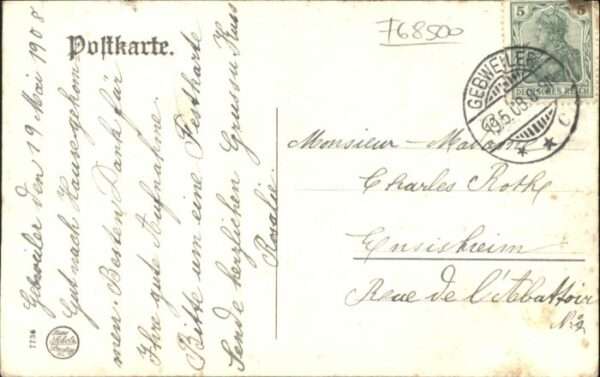 Postkarte.
F68500
5 5
DEUTSCHES REICH
GEBWEILER
19.5.08.8-9
C
Gebweiler den 19 Mai 1908
Gut nach Hause gekom-
men. Besten Dank für
Ihre gute Aufnahme.
Bitte um eine Festkarte
Sende herzlichen Gruss u Kuss
Rosalie.
Monsieur-Madame
Charles Rothe
Ensisheim
Rue de l'Abattoir
No 2
7736